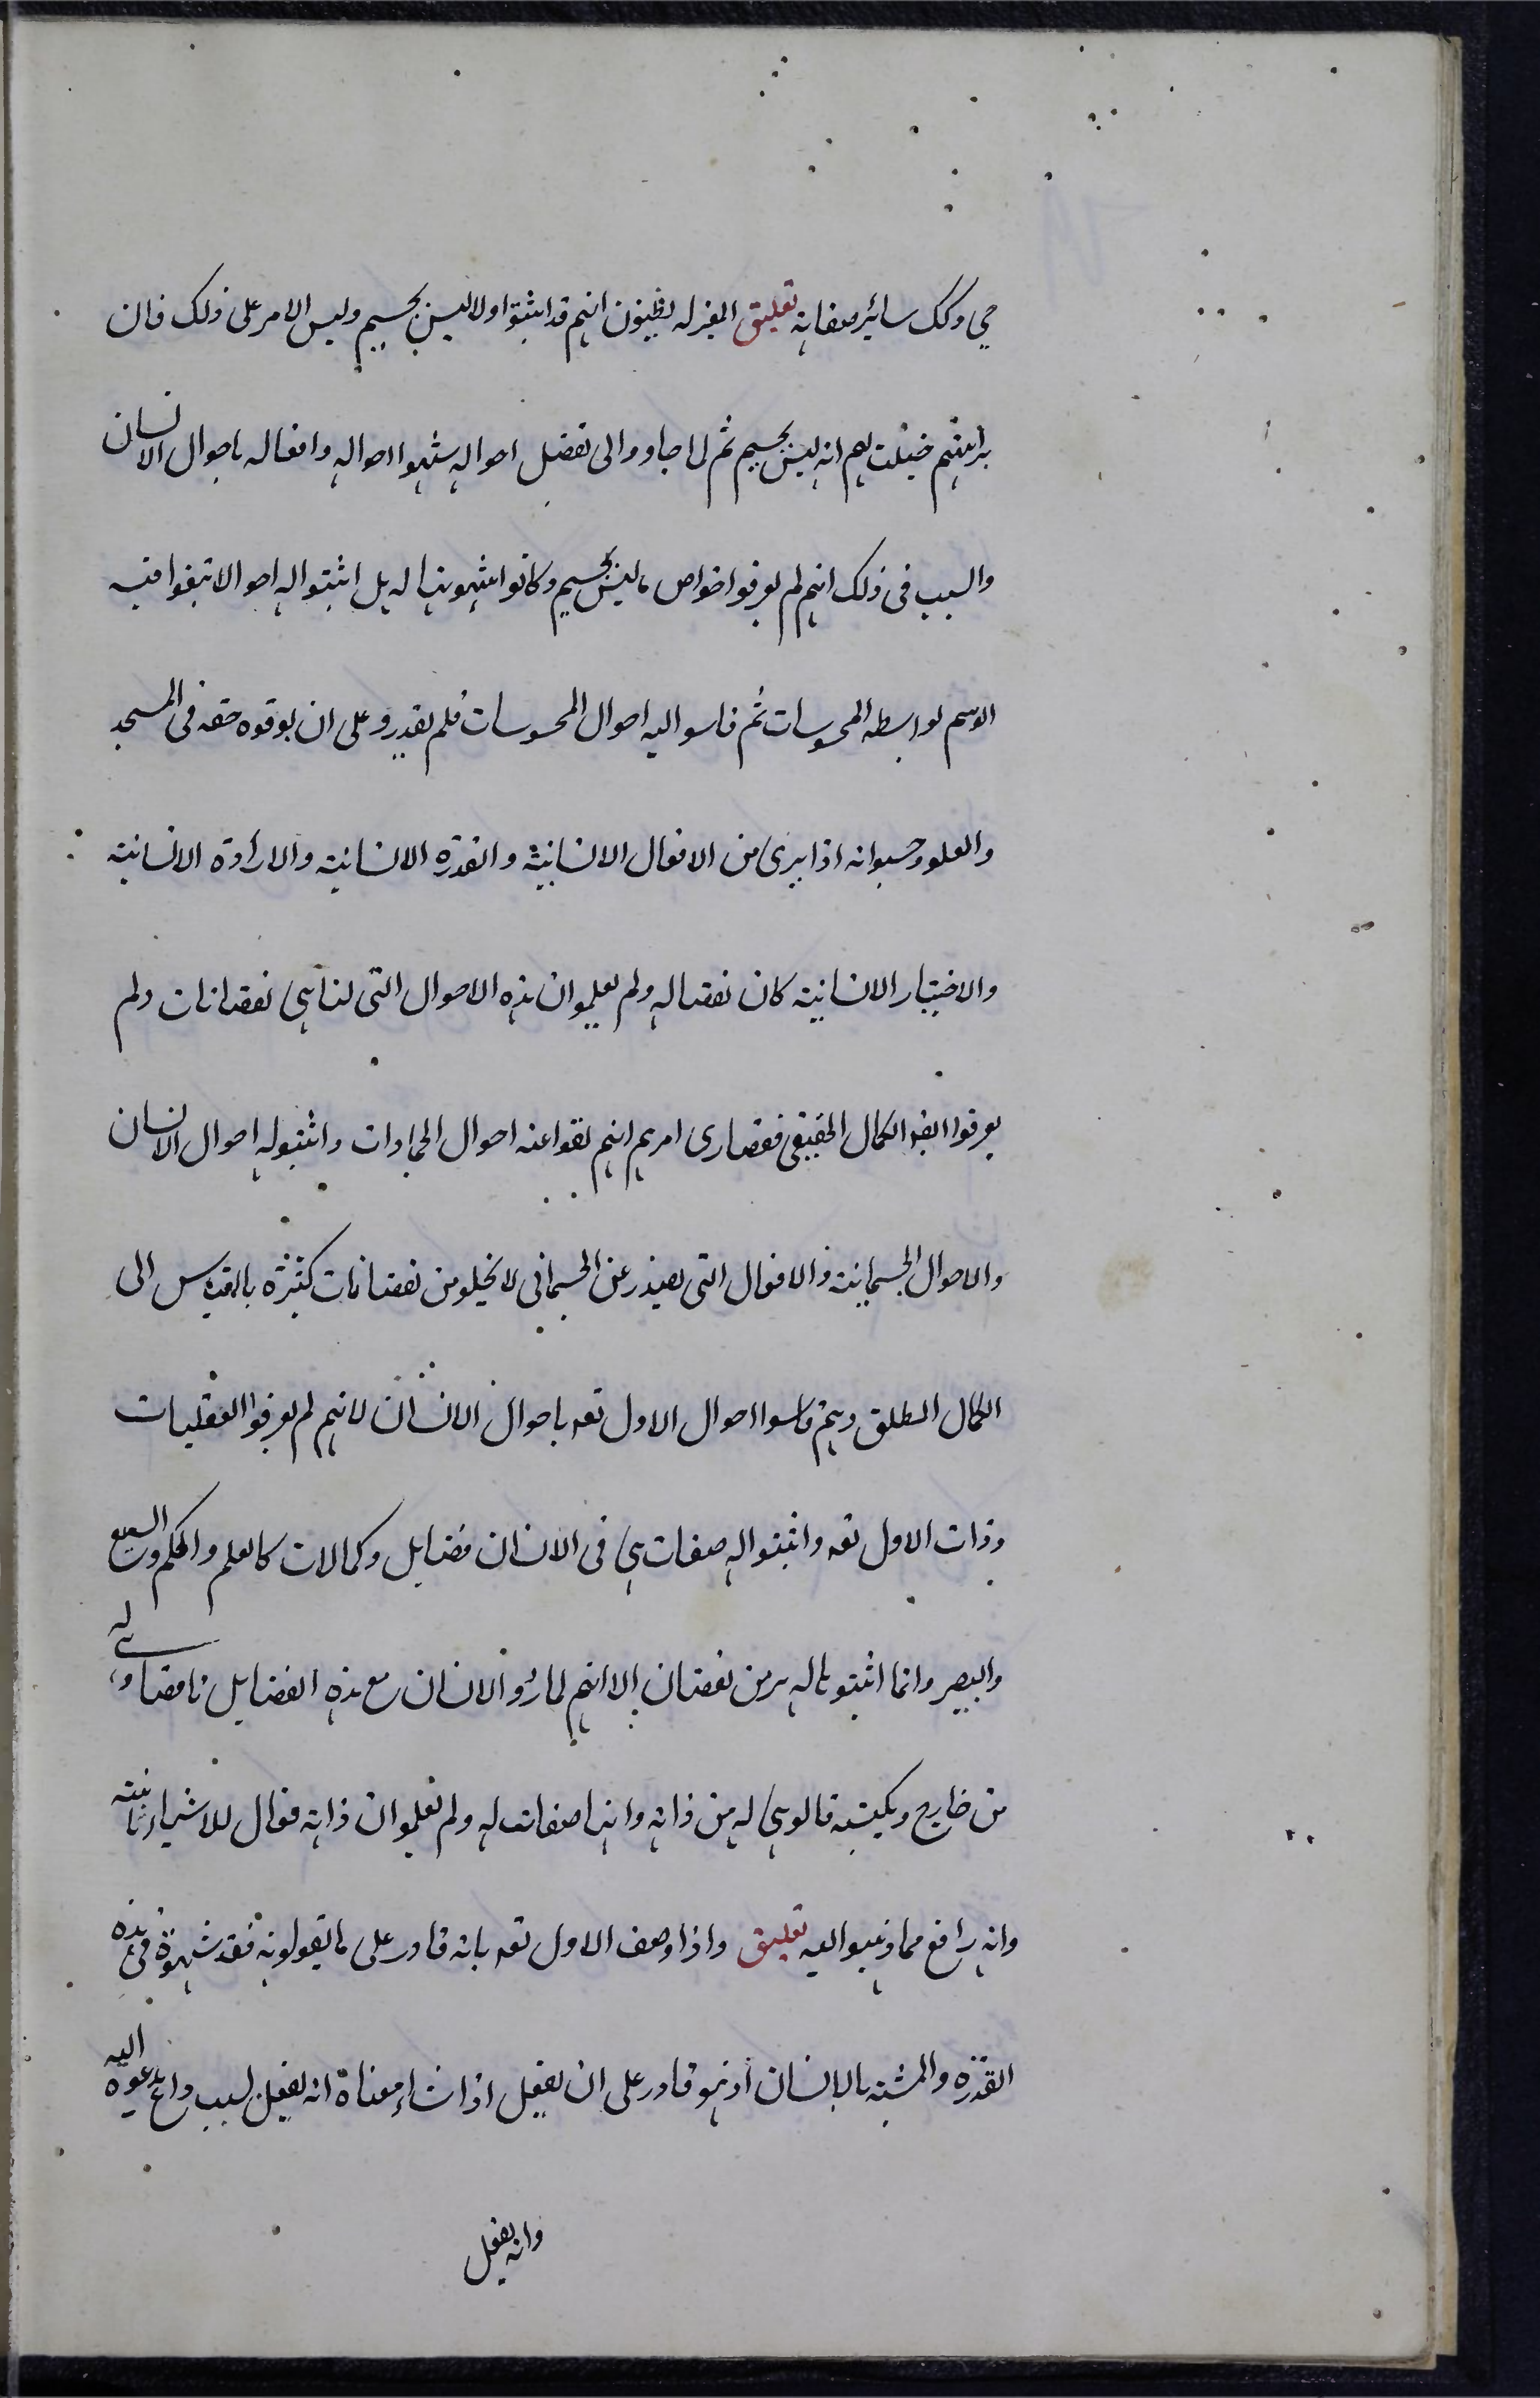 حي وكك سائر صفاته تعليق المعتزله يظنون انهم قد اثبتوا اولا ليس بجسم وليس الامر على ذلك فان
براهينهم خيلت لهم انه ليس بجسم ثم لما جاووا الى تفصيل احواله شبهوا احواله وافعاله باحوال الانسان
والسبب فى ذلك انهم لم يعرفوا خواص ما ليس بجسم وكانوا يشبهونها له بل اثبتوا له احوالا تبعوا فيه
الوهم بواسطه المحسوسات ثم قاسوا اليه احوال المحسوسات فلم يقدروا على ان يوفوه حقه فى المسجد
والعلو وحسبوا انه اذا برى من الافعال الانسانية والقدره الانسانية والارادة الانسانية
والاختيار الانسانية كان نقصا له ولم يعلموا ان هذه الاحوال التى لنا هى نقصانات ولم
يعرفوا ايضا الكمال الحقيقى فقصارى امرهم انهم نفوا عنه احوال الجمادات واثبتوا له احوال الانسان
والاحوال الجسمانية والافعال التى يصدر عن الجسمانى لا يخلو من نقصانات كثيره بالقياس الى
الكمال المطلق وهم قاسوا احوال الاول تعه باحوال الانسان لانهم لم يعرفوا العقليات
وذات الاول تعه واثبتوا له صفات هى فى الانسان فضايل وكمالات كالعلم والحكم والسميع
والبصير وانما اثبتوها له هربا من نقصان الا انهم لما راوا الانسان مع هذه الفضايل ناقصا وهى له
من خارج ويكتسبه قالوا هى له من ذاته وانها صفات له ولم يعلموا ان ذاته فعال للاشياء بذاته
وانه ارفع مما ذهبوا اليه تعليق واذا وصف الاول تعه بانه قادر على ما يقولونه فقد شبهوه فى هذه
القدره والمشيه بالانسان اذ هو قادر على ان يفعل اذا شاء معناه انه يفعل لسبب داع يدعوه اليه
وانه يفعل